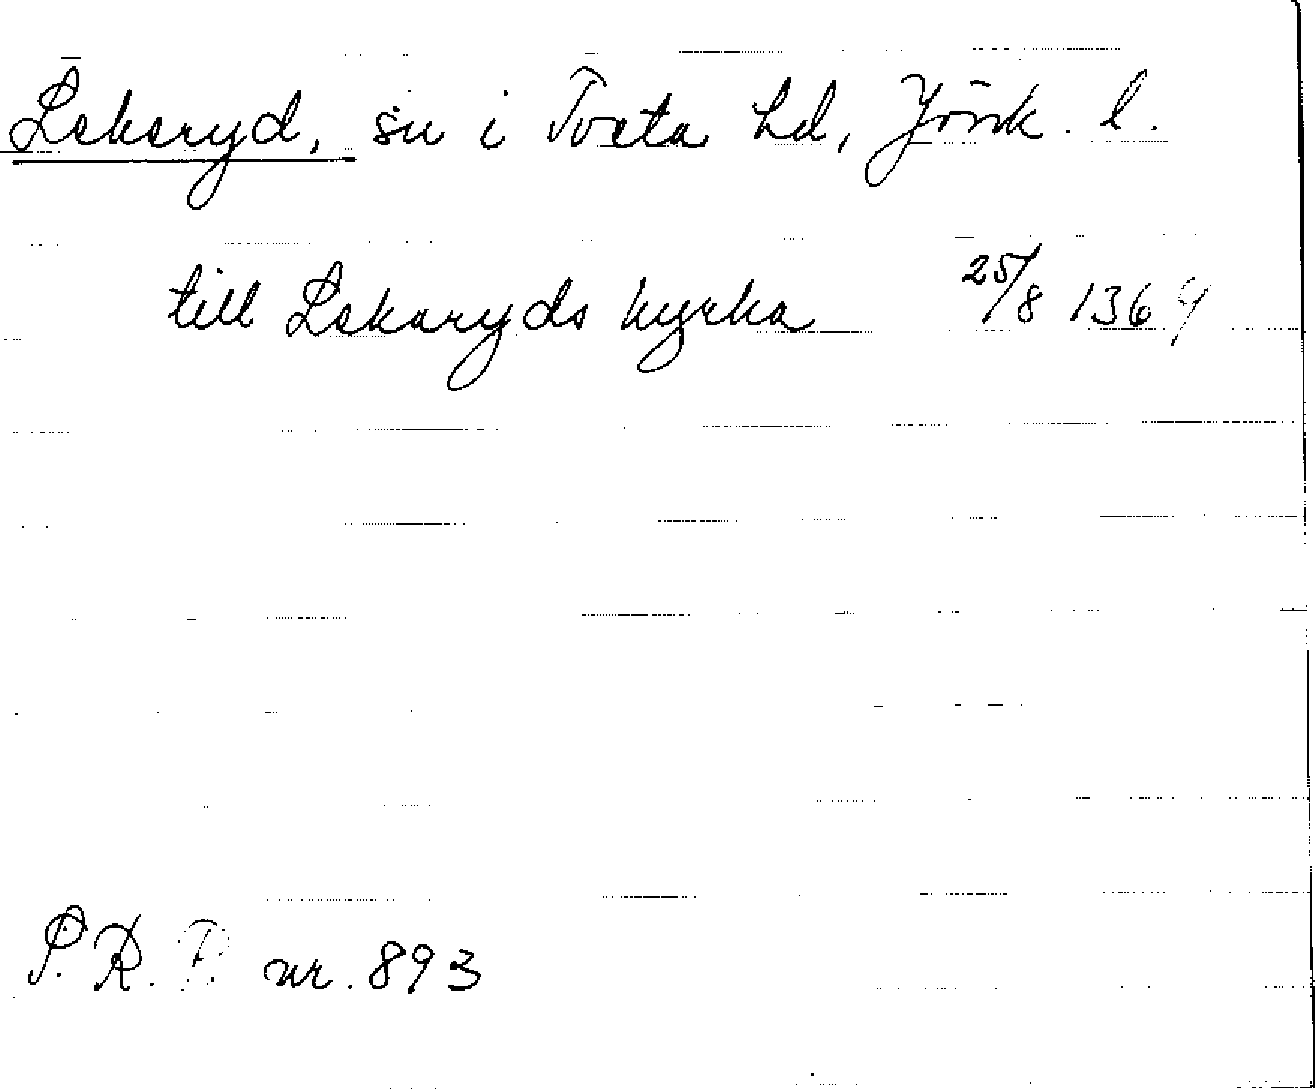 Lekaryd, sn i Tveta hd, Jönk. l.
till Lekaryds kyrka 25/8 1369
S.R.P. nr. 893